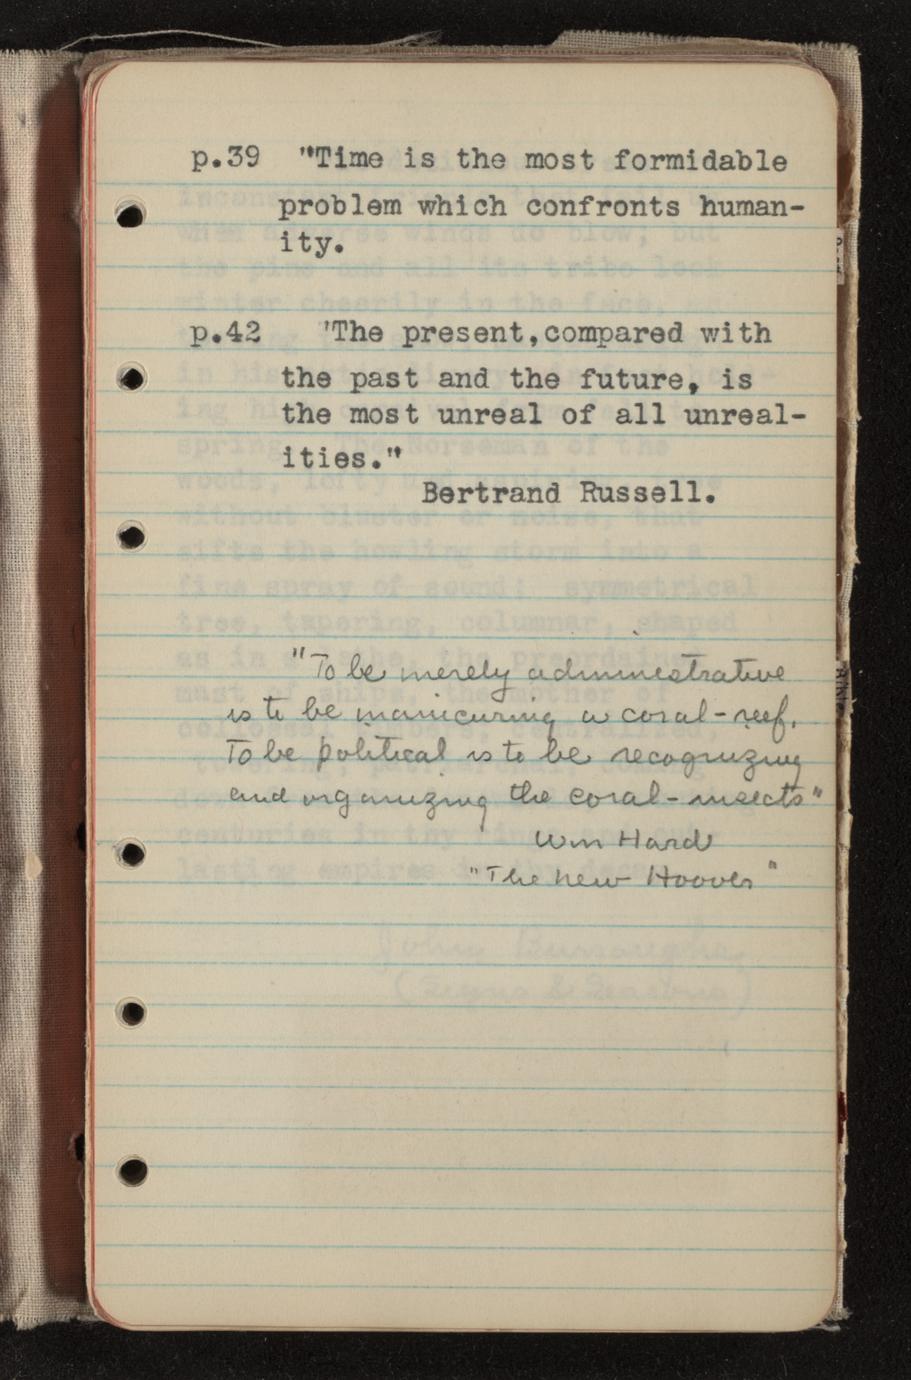 p.39 "Time is the most formidable
problem which confronts human-
ity.
p.42 'The present,compared with
the past and the future, is
the most unreal of all unreal-
ities."
Bertrand Russell.
"To be merely administrative
is to be manicuring a coral-reef.
To be political is to be recognizing
and organizing the coral-insects"
Wm Hard
"The New Hoover"